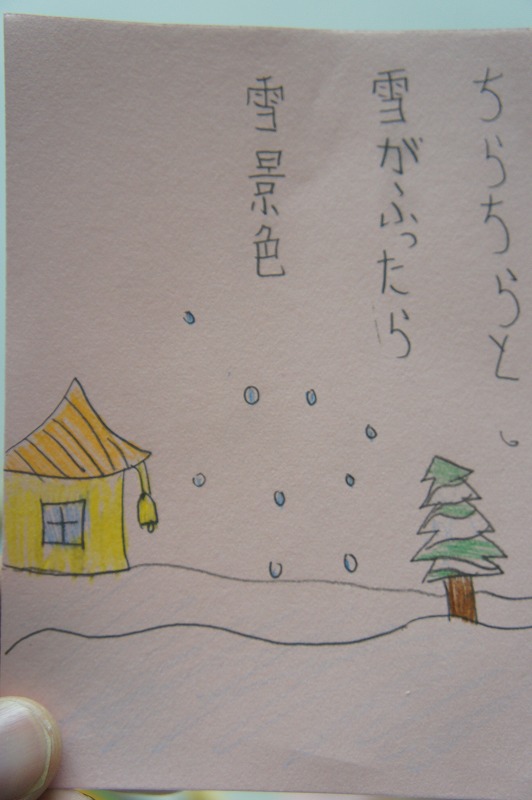 ちらちらと
雪がふったら
雪景色